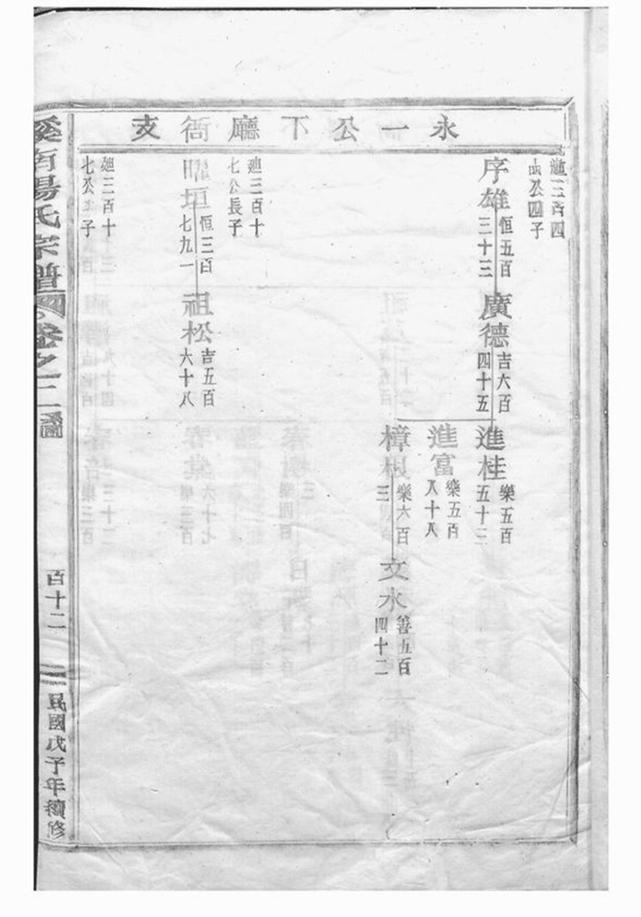 永一公下廳衙支
序雄
恒五百
三十三
廣德
吉六百
四十五
進桂
樂五百
五十三
進富
樂五百
八十八
樟根
樂六百
三
文水
善五百
四十二
廸三百十
七公長子
垣
恒三百
七九一
祖松
吉五百
六十八
廸三百十
七公子
溪南楊氏宗譜
卷之二
圖
百十二
民國戊子年續修